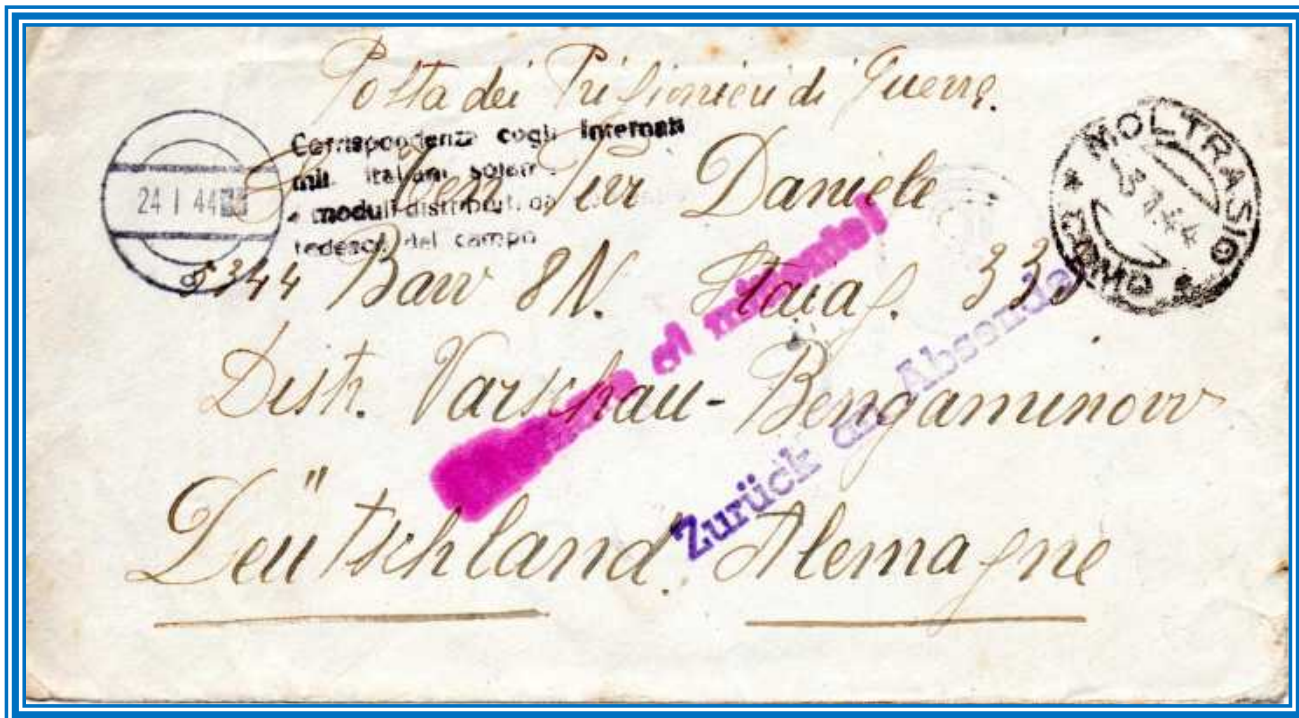 Posta dei Prisionieri di Guerra.
Corrispondenza cogli Internati
mil. italiani soleto
e moduli distribuiti da
tedesco del campo
24 1 44
MOLTRASIO
* (COMO) *
3.1.44
Ten Pir Daniele
5344 Baw 8N. Stalag. 333
Distr. Varschau-Bengaminow
al mittente
Zurück an Absender
Deütschland. Alemagne